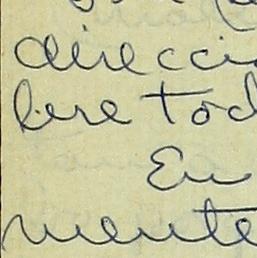 direcci
bere tod
En
mente